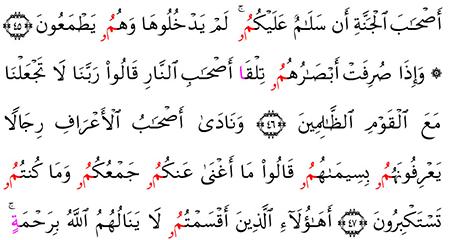 أَصْحَٰبَ ٱلْجَنَّةِ أَن سَلَٰمٌ عَلَيْكُمُۥ ۚ لَمْ يَدْخُلُوهَا وَهُمُۥ يَطْمَعُونَ ﴿٤٥﴾
۞ وَإِذَا صُرِفَتْ أَبْصَٰرُهُمُۥ تِلْقَا أَصْحَٰبِ ٱلنَّارِ قَالُواْ رَبَّنَا لَا تَجْعَلْنَا
مَعَ ٱلْقَوْمِ ٱلظَّٰلِمِينَ ﴿٤٦﴾ وَنَادَىٰ أَصْحَٰبُ ٱلْأَعْرَافِ رِجَالًا
يَعْرِفُونَهُمُۥ بِسِيمَىٰهُمُۥ قَالُواْ مَا أَغْنَىٰ عَنكُمُۥ جَمْعُكُمُۥ وَمَا كُنتُمُۥ
تَسْتَكْبِرُونَ ﴿٤٧﴾ أَهَٰؤُلَآءِ ٱلَّذِينَ أَقْسَمْتُمُۥ لَا يَنَالُهُمُ ٱللَّهُ بِرَحْمَةٍ ۚ